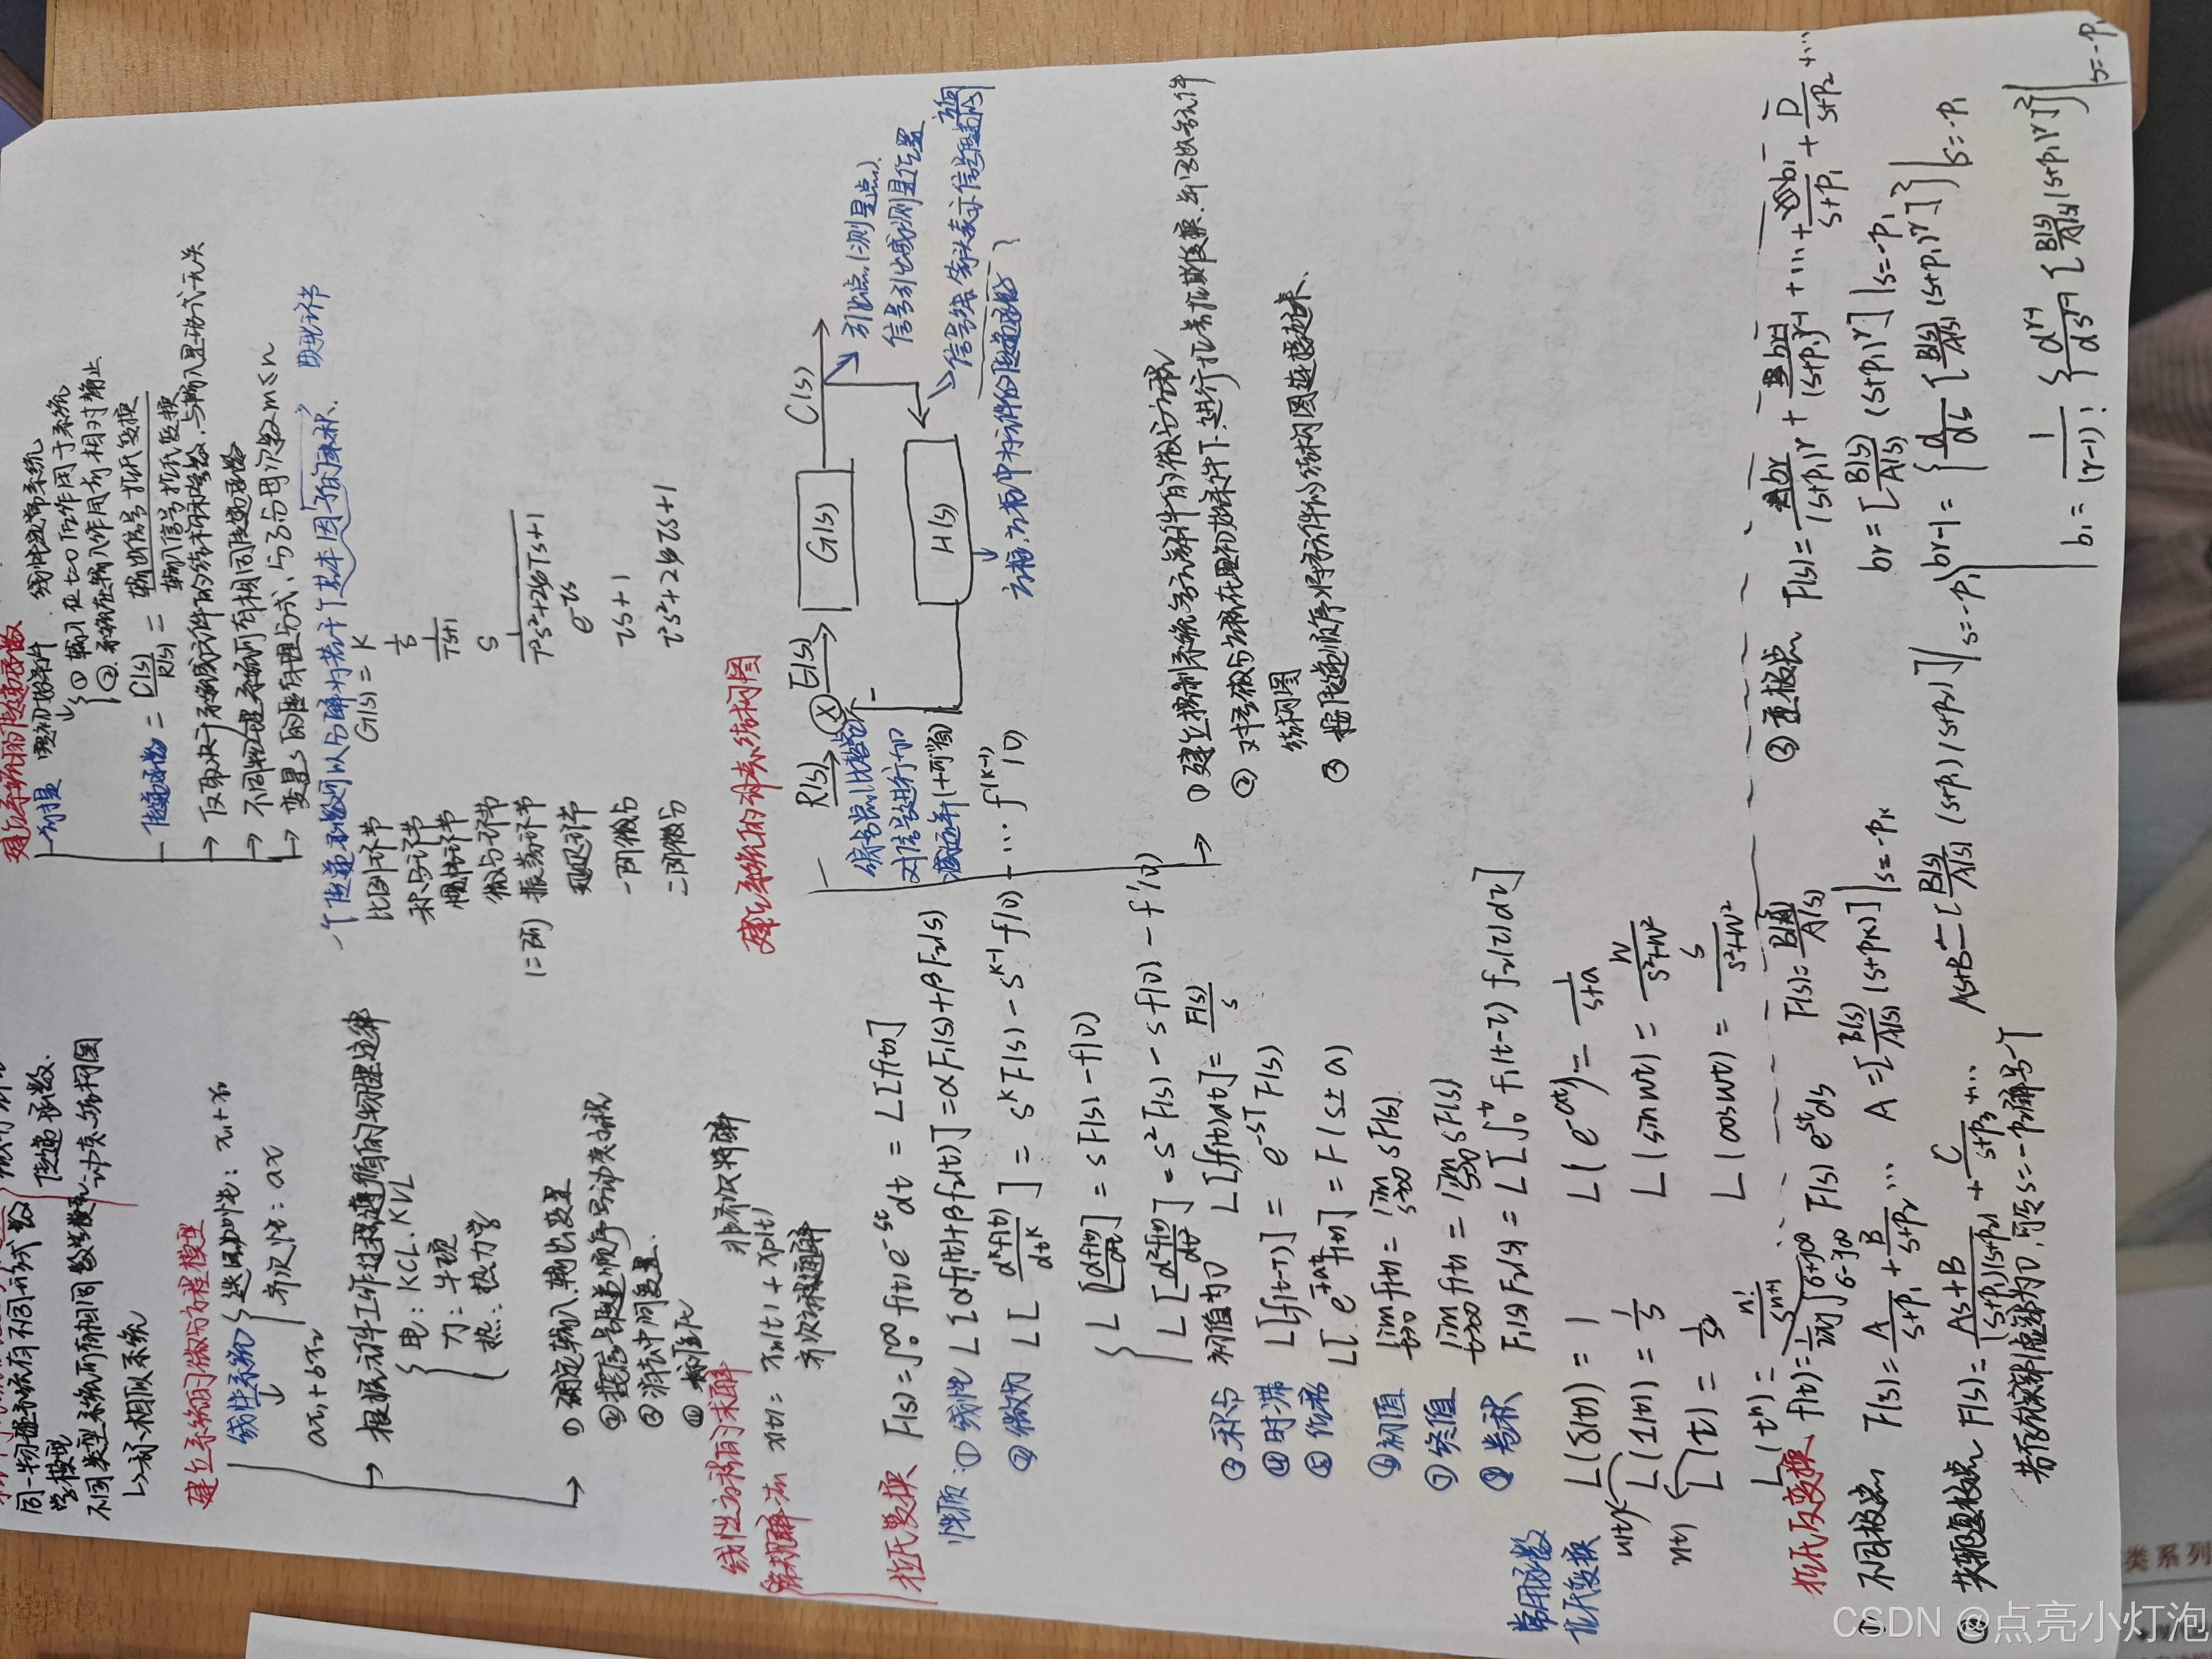 同一物理系统有不同形式数
学模型
不同类型系统所有相同数学模型
↳称相似系统
传递函数.
动态结构图
建立系统的微分方程模型
线性系统 { 迭加性: x₁+x₂
齐次性: ax
ax₁+bx₂
根据元件工作过程遵循的物理定律
电: KCL. KVL
力: 牛顿
热: 热力学
① 确定输入.输出变量
② 按信号传递顺序写动态方程
③ 消去中间变量.
④ 标准化
线性方程的求解
常规解法 x(t) = xₙ(t) + xₚ(t)
非齐次特解
齐次方程通解
拉氏变换 F(s)=∫₀^∞ f(t) e^-st dt = L[f(t)]
性质: ① 线性 L[αf₁(t)+βf₂(t)]=αF₁(s)+βF₂(s)
② 微分 L[d^k f(t)/dt^k] = s^k F(s) - s^k-1 f(0) - … f^(k-1)(0)
L[df(t)/dt] = sF(s) - f(0)
L[d²f(t)/dt²] = s²F(s) - sf(0) - f'(0)
初值为0
③ 积分 L[∫f(t)dt] = F(s)/s
④ 时滞 L[f(t-T)] = e^-sT F(s)
⑤ 位移 L[e^∓at f(t)] = F(s±a)
⑥ 初值 lim t→0 f(t) = lim s→∞ sF(s)
⑦ 终值 lim t→∞ f(t) = lim s→0 sF(s)
⑧ 卷积 F₁(s)F₂(s) = L[∫₀^t f₁(t-τ) f₂(τ)dτ]
常用函数
拉氏变换
L(δ(t)) = 1
L(1(t)) = 1/s
L(t) = 1/s²
L(tⁿ) = n!/s^n+1
L(e^-at) = 1/s+a
L(sinwt) = w/s²+w²
L(coswt) = s/s²+w²
拉氏反变换 f(t) = 1/2πj ∫σ-j∞ σ+j∞ F(s) e^st ds
F(s)=B(s)/A(s)
① 不同极点 F(s)= A/s+p₁ + B/s+p₂ …
A=[B(s)/A(s) (s+pₖ)]|s=-pₖ
② 共轭复极点 F(s)= As+B/(s+p₁)(s+p₂) + C/s+p₃ +…
As+B=[B(s)/A(s) (s+p₁)(s+p₂)]|s=-p₁
③ 重极点 F(s)= br/(s+p₁)^r + br-1/(s+p₁)^r-1 + … + b₁/s+p₁ + D/s+p₂ +…
br = [B(s)/A(s) (s+p₁)^r]|s=-p₁
br-1 = {d/ds [B(s)/A(s) (s+p₁)^r]}|s=-p₁
b₁ = 1/(r-1)! {d^r-1/ds^r-1 [B(s)/A(s) (s+p₁)^r]}|s=-p₁
建立系统的传递函数
前提 零初始条件 线性定常系统
① 输入在t=0后作用于系统
② 系统在输入作用前相对静止
传递函数 = C(s)/R(s) = 输出信号拉氏变换/输入信号拉氏变换
→ 仅取决于系统或元件的结构和参数,与输入量形式无关
→ 不同物理系统可有相同传递函数
→ 变量s的有理分式,分子与分母次数m≤n
一个传递函数可以分解为若干个基本因子的乘积.
典型环节
比例环节 G(s) = K
积分环节 1/s
惯性环节 1/Ts+1
微分环节 s
(二阶) 振荡环节 1/T²s²+2ζTs+1
延迟环节 e^-τs
一阶微分 τs+1
二阶微分 τ²s²+2ζτs+1
建立系统的动态结构图
R(s) E(s) G(s) C(s)
H(s)
引出点(测量点)
信号引出或测量位置
信号线: 箭头表示信号传递方向
综合点(比较点)
对信号进行加
减运算(+可省)
方框: 方框中为元件的传递函数
① 建立控制系统各元部件的微分方程
② 对各微分方程在零初始条件下,进行拉氏变换,并画出各元件
结构图
③ 按传递顺序将各元件的结构图连接起来.
类系列
CSDN @点亮小灯泡